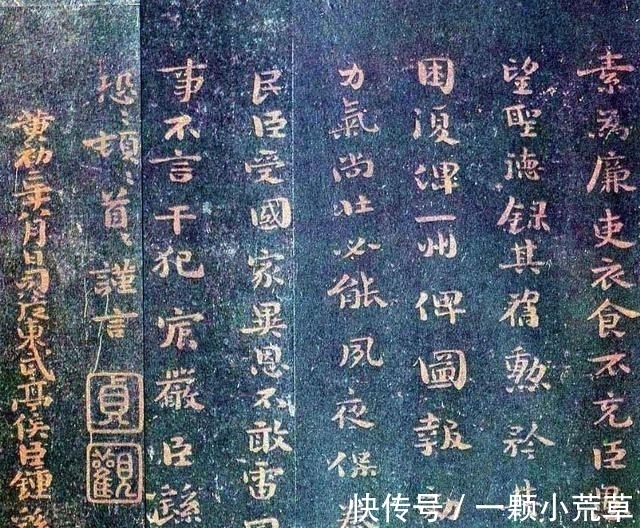 素為廉吏衣食不充臣
望聖德録其舊勲矜其
困復俾一州俾圖報
力氣尚壯必能夙夜保養
民臣受國家異恩不敢雷同
事不言干犯宸嚴臣繇
恐〻頓〻首〻謹言
貞觀
黃初二年八月日司徒東武亭侯臣鍾繇
快传号／一颗小荒草